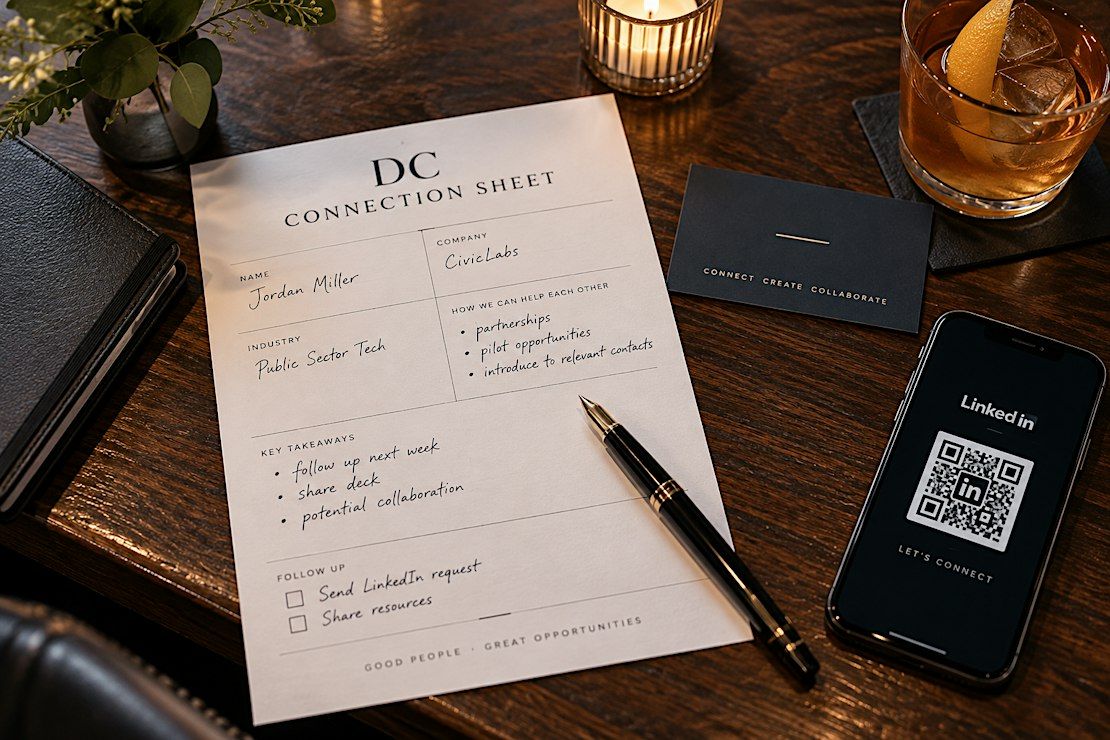 DC
CONNECTION SHEET
NAME
Jordan Miller
COMPANY
CivicLabs
INDUSTRY
Public Sector Tech
HOW WE CAN HELP EACH OTHER
• partnerships
• pilot opportunities
• introduce to relevant contacts
KEY TAKEAWAYS
• follow up next week
• share deck
• potential collaboration
FOLLOW UP
Send LinkedIn request
Share resources
GOOD PEOPLE · GREAT OPPORTUNITIES
CONNECT CREATE COLLABORATE
LinkedIn
in
LET'S CONNECT